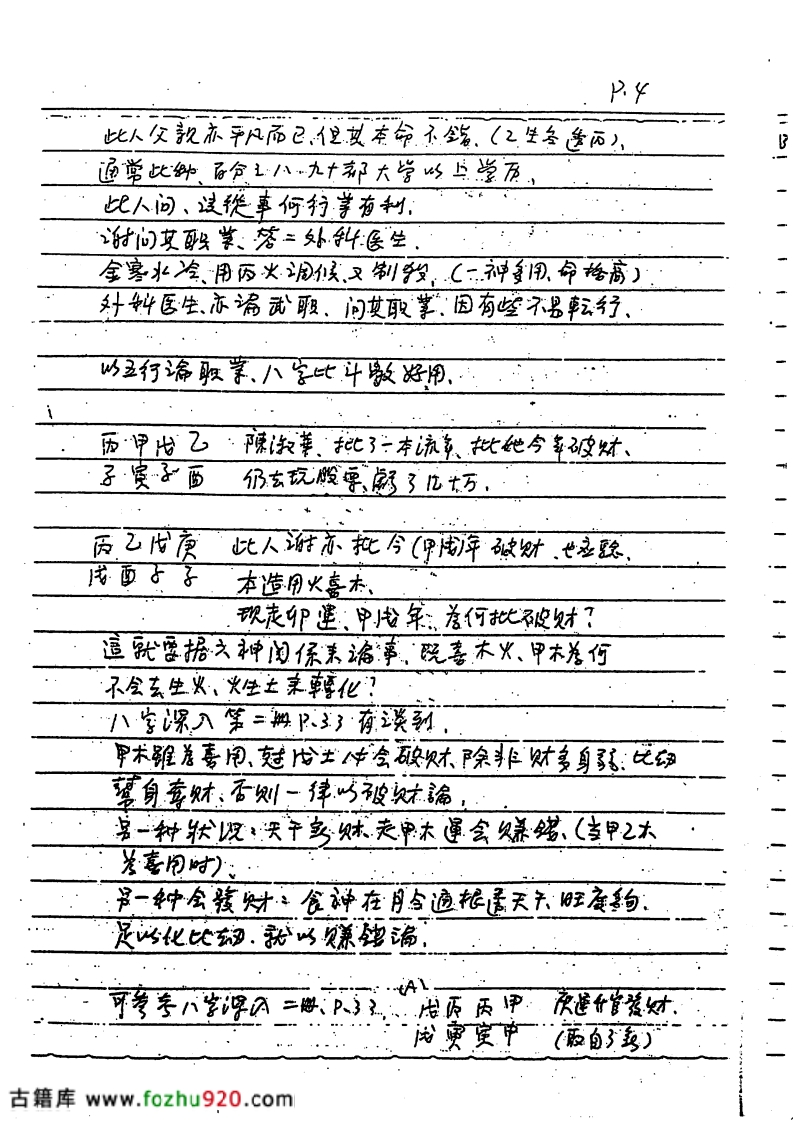 P.4
此人父親亦平凡而已,但其本命不錯,(乙生冬透丙)。
通常此种、百分之八、九十都大学以上学历。
此人问、該從事何行業有利。
谢问其职業、答=外科医生。
金寒水冷、用丙火调候、又制殺、(一神多用、命格高)
外科医生、亦論武职、问其职業、因有些不易転行。
以五行論职業、八字比斗數好用。
丙甲戊乙 陳淑華、批了一本流年、批她今年破财、
子寅子酉 仍去玩股票、虧了几十万。
丙乙戊庚 此人谢亦批今(甲戌)年破财
戌酉子子 本造用火喜木。
现走卯運、甲戌年、為何批破财?
這就要据六神関係来論事、既喜木火、甲木為何
不会去生火、火生土来轉化?
八字深入第二冊P.33有談到。
甲木雖為喜用、尅戊土仍会破财、除非财多身弱、比劫
幫身奪财、否則一律以破财論。
另一种狀况:天干無财、走甲木運会赚錢、(当甲乙木
為喜用时)。
另一种会發财:食神在月令通根透天干、旺度夠、
足以化比劫、就以赚錢論。
可参考八字深入二冊、P.33、(A) 戊丙丙甲 庚運升官發财.
戌寅寅申
古籍库 www.fozhu920.com